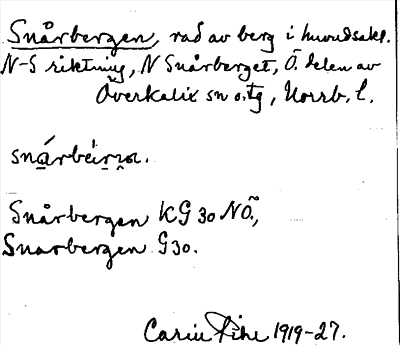 Snårbergen, rad av berg i huvudsakl.
N-S riktning, N Snårberget, Ö. delen av
Överkalix sn o. tg, Norrb. l.
Snårbergen KG 30 NÖ,
Snarbergen G30.
Carin Pihl 1919-27.